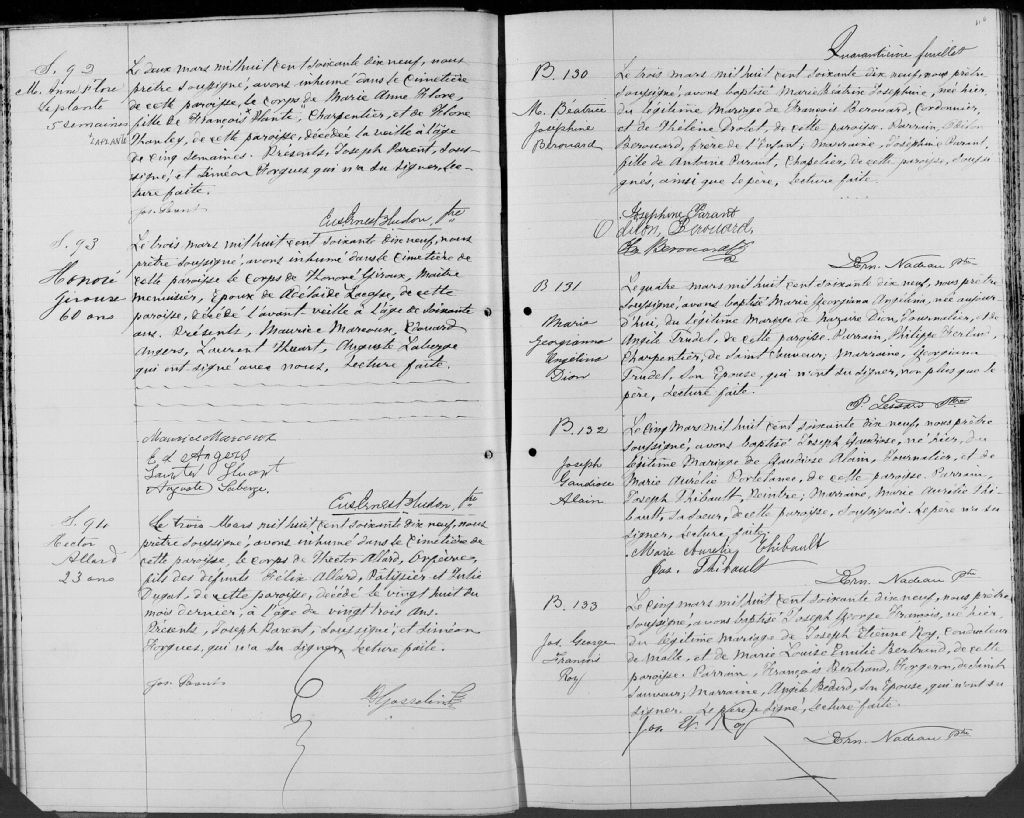 S. 92
M. Anne Flore
Leplante
5 semaines
"LAPLANTE
Le deux mars mil huit cent soixante dix neuf, nous
prêtre soussigné, avons inhumé dans le cimetière
de cette paroisse, le corps de Marie Anne Flore,
fille de François Plante, Charpentier, et de Flore
de cette paroisse, décédée la veille à l'âge
de cinq semaines. Présents, Joseph Parent, sous-
signé, et Siméon Forgues qui n'a su signer, lec-
ture faite.
Jos. Parent
Eus. Ernest Hudon, Ptre
S. 93
Honoré
Giroux
60 ans
Le trois mars mil huit cent soixante dix neuf, nous
prêtre soussigné, avons inhumé dans le cimetière de
cette paroisse le corps de Honoré Giroux, Maître
menuisier, Epoux de Adélaïde Lacasse, de cette
paroisse, décédé l'avant veille à l'âge de soixante
ans. Présents, Maurice Marcoux, Edouard
Angers, Laurent Huart, Auguste Laberge
qui ont signé avec nous, Lecture faite.
Maurice Marcoux
E d Angers
Huart
Auguste Laberge
Eus. Ernest Hudon, Ptre
S. 94
Hector
Allard
23 ans
Le trois Mars mil huit cent soixante dix neuf, nous
prêtre soussigné, avons inhumé dans le cimetière de
cette paroisse, le corps de Hector Allard, Orfèvre,
fils des défunts Félix Allard, Pâtissier et Julie
de cette paroisse, décédé le vingt huit du
mois dernier, à l'âge de vingt trois ans.
Présents, Joseph Parent, soussigné, et Siméon
Forgues, qui n'a su signer, Lecture faite.
Jos. Parent
Gosselin
Quarantième feuillet
B. 130
M. Béatrice
Josephine
Berouard
Le trois mars mil huit cent soixante dix neuf, nous prêtre
soussigné, avons baptisé Marie Béatrice Josephine, née hier,
du légitime Mariage de François Berouard, Cordonnier,
et de Hélène Drolet, de cette paroisse. Parrain, Odilon
Berouard, frère de l'Enfant; Marraine, Joséphine Parant,
fille de Antoine Parant, Chapelier, de cette paroisse, soussi-
gnés, ainsi que le père, Lecture faite.
Josephine Parant
Odilon Berouard.
Fr Berouard
Ern. Nadeau Ptre
B 131
Marie
Georgianna
Angelina
Dion
Le quatre mars mil huit cent soixante dix neuf, nous prêtre
soussigné, avons baptisé Marie Georgiana Angelina, née aujour-
d'hui, du légitime Mariage de Nazaire Dion, Journalier, et de
Angèle Trudel, de cette paroisse. Parrain, Philippe
Charpentier, de Saint Sauveur; Marraine, Georgiana
Trudel, son Epouse, qui n'ont su signer, non plus que le
père, Lecture faite.
P. Lessard Ptre
B. 132
Joseph
Gaudiose
Alain
Le Cinq Mars mil huit cent soixante dix neuf, nous prêtre
soussigné, avons baptisé Joseph Gaudiose, né hier, du
légitime Mariage de Gaudiose Alain, Journalier, et de
Marie Aurélie Portelance, de cette paroisse. Parrain,
Joseph Thibault, Peintre; Marraine, Marie Aurélie Thi-
bault, sa sœur, de cette paroisse, soussignés. Le père n'a su
signer, Lecture faite.
Marie Aurelie Thibault
Jos. Thibault
Ern. Nadeau Ptre
B. 133
Jos. George
François
Roy
Le Cinq mars mil huit cent soixante dix neuf, nous prêtre
soussigné, avons baptisé Joseph George François, né hier,
du légitime mariage de Joseph Etienne Roy, Conducteur
de Malle, et de Marie Louise Emilie Bertrand, de cette
paroisse. Parrain, François Bertrand, Forgeron, de Saint
Sauveur; Marraine, Angèle Bedard, son Epouse, qui n'ont su
signer. Le père a signé, Lecture faite.
Jos. Et. Roy
Ern. Nadeau Ptre